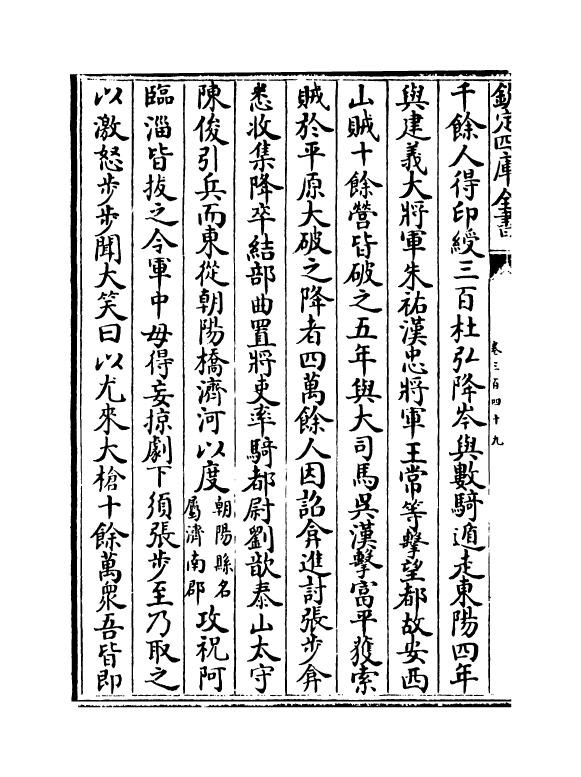 欽定四庫全書
卷三百四十九
千餘人得印綬三百杜弘降岑與數騎遁走東陽四年
與建義大將軍朱祐漢忠將軍王常等擊望都故安西
山賊十餘營皆破之五年與大司馬吳漢擊富平獲索
賊於平原大破之降者四萬餘人因詔弇進討張步弇
悉收集降卒結部曲置將吏率騎都尉劉歆泰山太守
陳俊引兵而東從朝陽橋濟河以度朝陽縣名屬濟南郡攻祝阿
臨淄皆拔之令軍中毋得妄掠劇下須張步至乃取之
以激怒步步聞大笑曰以尤來大槍十餘萬衆吾皆即